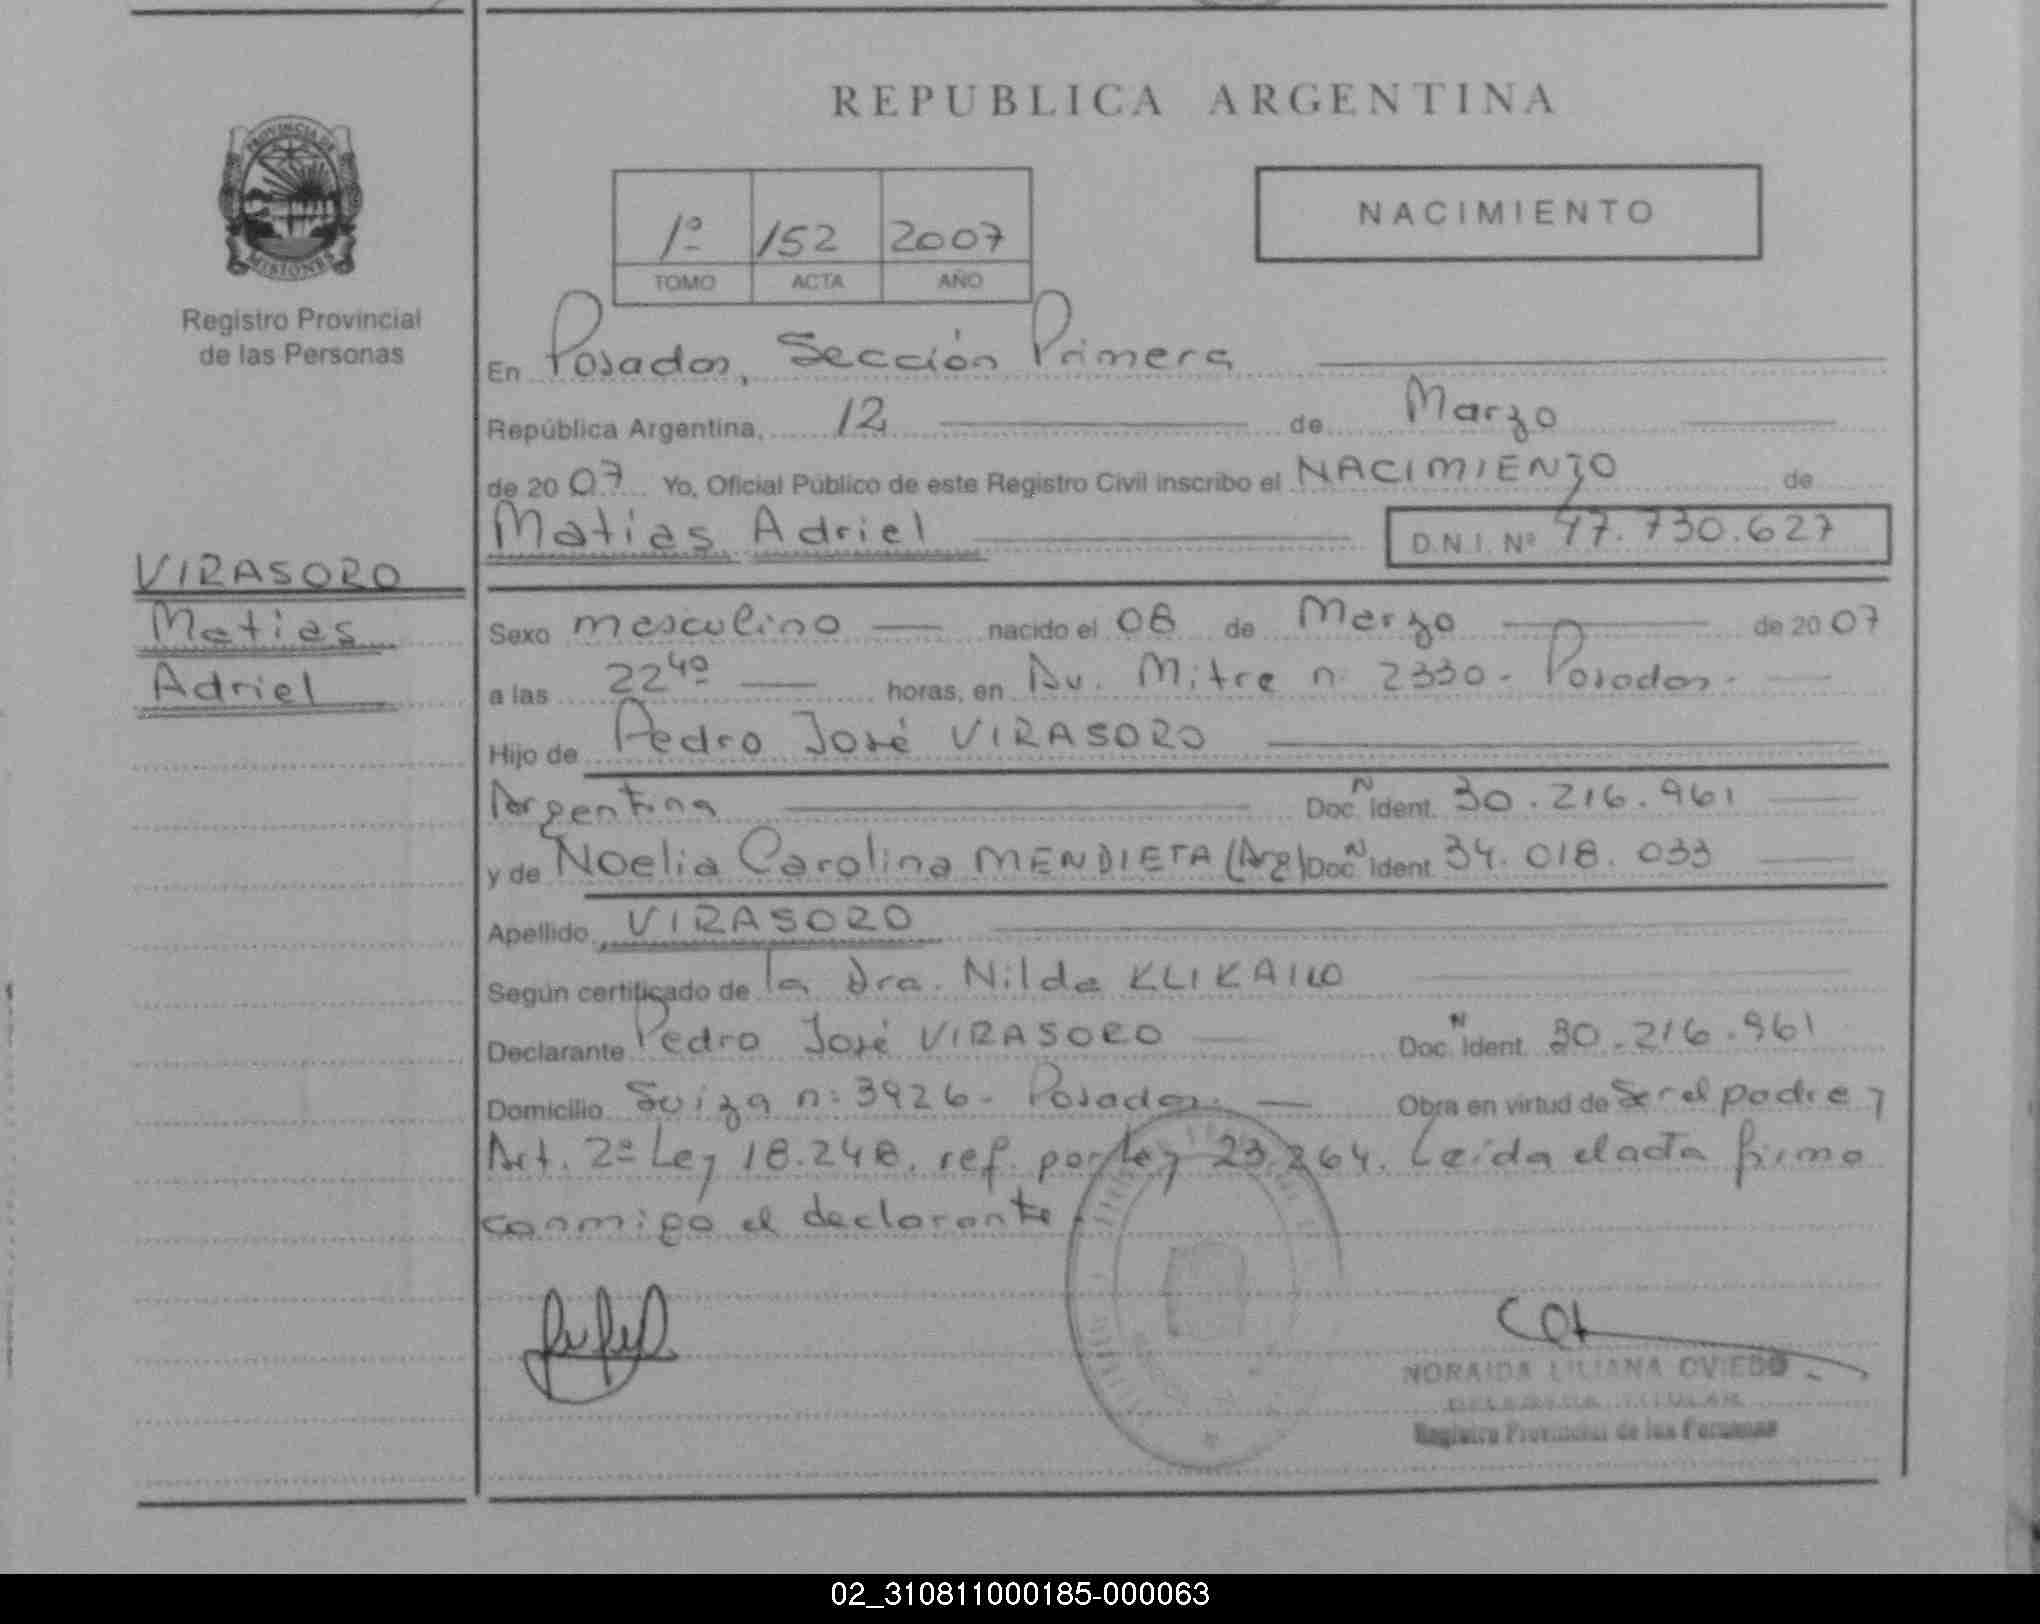 REPUBLICA ARGENTINA
PROVINCIA DE
MISIONES
Registro Provincial
de las Personas
1º 152 2007
TOMO ACTA AÑO
NACIMIENTO
En Posadas, Sección Primera
República Argentina, 12 de Marzo
de 2007 Yo, Oficial Público de este Registro Civil inscribo el NACIMIENTO de
Matias Adriel D.N.I. Nº 47.730.627
VIRASORO
Matias
Adriel
Sexo masculino nacido el 08 de Marzo de 2007
a las 22 40 horas, en Av. Mitre n: 2330 - Posadas -
Hijo de Pedro José VIRASORO
Argentina Doc. N Ident. 30.216.961
y de Noelia Carolina MENDIETA (Arg) Doc. N Ident. 34.018.033
Apellido VIRASORO
Según certificado de la Dra. Nilda
Declarante Pedro José VIRASORO Doc. N Ident. 30.216.961
Domicilio Suiza n: 3926 - Posadas. Obra en virtud de Ser el padre y
Art. 2º Ley 18.248. ref. por Ley 23.264. Leída el acta firma
conmigo el declarante.
NORAIDA LILIANA OVIEDO
DELEGADA TITULAR
Registro Provincial de las Personas
02_310811000185-000063